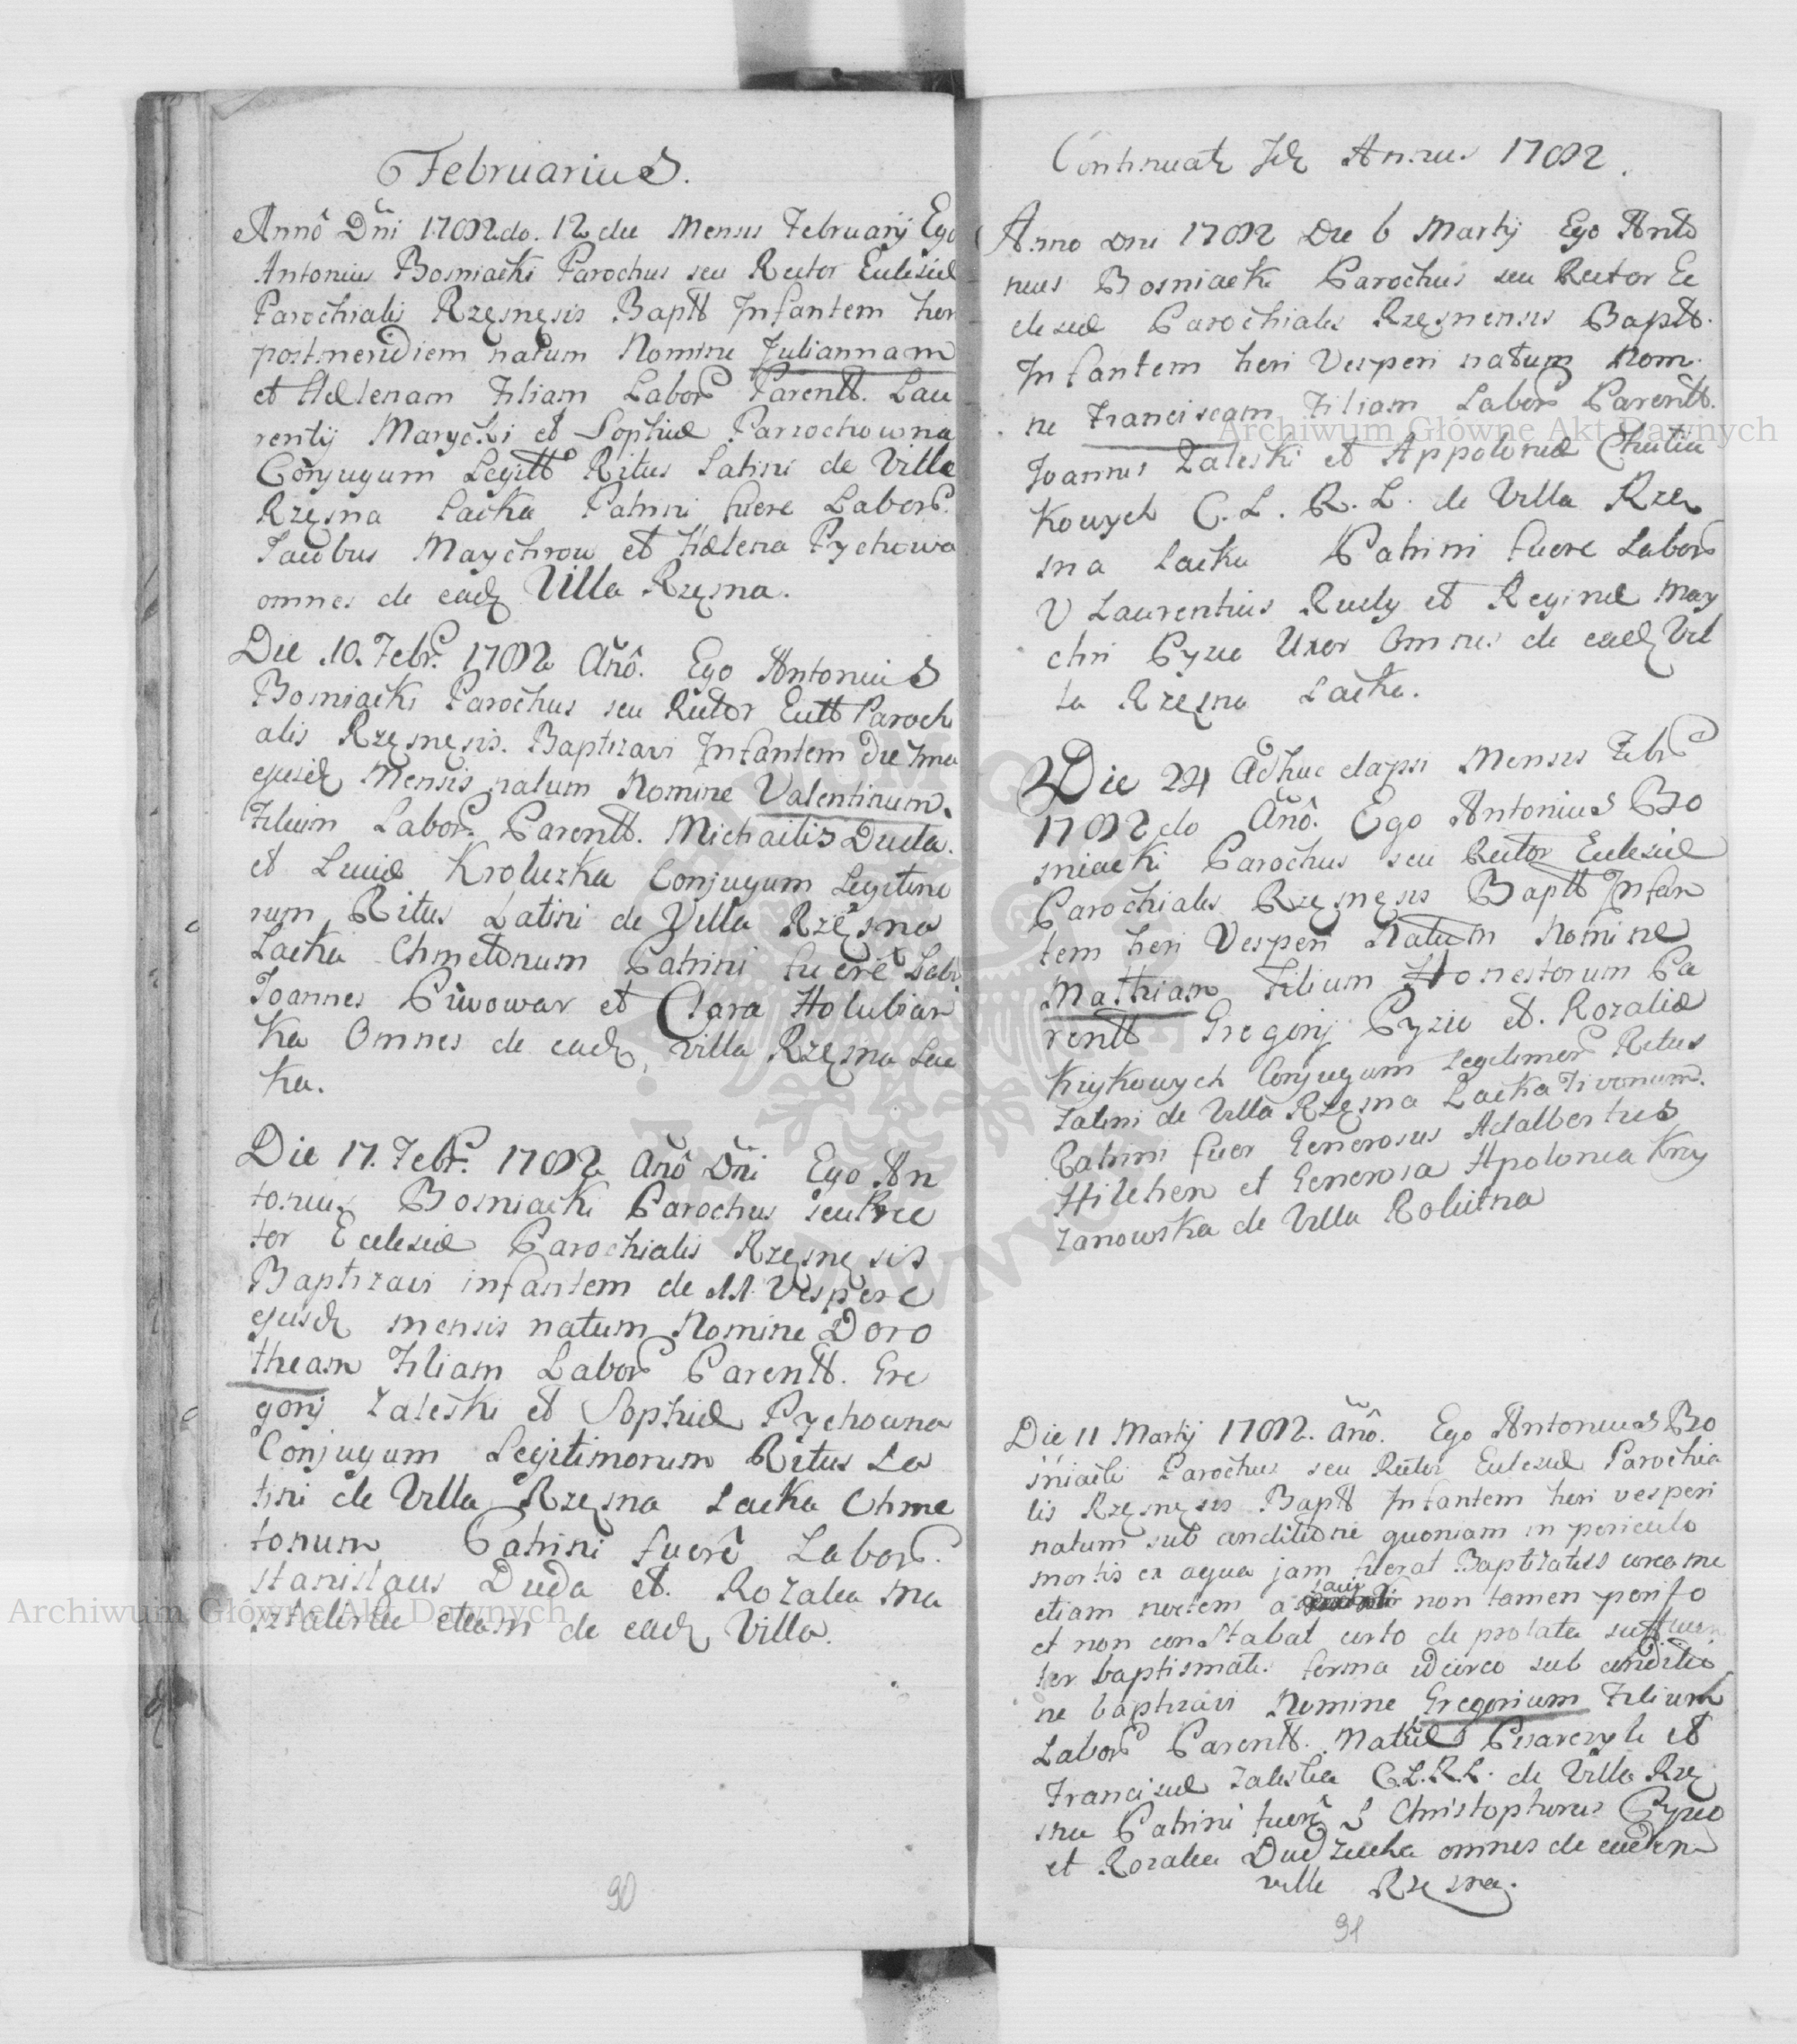 Februarius.
Annô Dñi 1782do. 12 die Mensis Februarij Ego
Antonius Bosniacki Parochus seu Rector Ecclesiæ
Parochialis Rzęsnęsis Baptt Infantem heri
postmeridiem natum Nomine Juliannam
et Hellenam Filiam Labor Parentt. Lau
rentij Marycki et Sophiæ Parrochowna
Conjugum Legitt Ritus Latini de Villa
Rzęsna Lacka Patrini fuere Labor.
Jacobus Maychrow et Hælena Pychowa
omnes de ead Villa Rzęsna.
Die 10. Febr. 1782 Añô. Ego Antonius
Bosniacki Parochus seu Rector Ecctt Paroch
alis Rzęsnęsis. Baptizavi Infantem die 7ma
ejusd Mensis natum Nomine Valentinum.
Filium Labor. Parentt. Michaelis Duda.
et Luciæ Kroluzka Conjugum Legitimo
rum Ritus Latini de Villa Rzęsna
Lacka Chmetonum Patrini fuerê Labr.
Joannes Piwowar et Clara Holubian
ka Omnes de ead villa Rzęsna Lac
ka.
Die 17. Febr. 1782 Añô Dñi Ego An
tonius Bosniacki Parochus seu Rec
tor Ecclesiæ Parochialis Rzęsnęsis
Baptizavi infantem de 11. Vespere
ejusd mensis natum Nomine Doro
theam Filiam Labor Parentt. Gre
gorij Zaleski et Sophiæ Pychowna
Conjugum Legitimorum Ritus La
tini de Villa Rzęsna Lacka Chme
tonum Patrini fuerê Labor.
Stanislaus Duda et. Rozalia Ma
sztalerka etiam de ead Villa.
90
Continuat Id Annus 1782.
Anno Dni 1782 Die 6 Martij Ego Anto
nius Bosniacki Parochus seu Rector Ec
clesiæ Parochialis Rzęsnensis Baptt.
Infantem heri Vesperi natum Nom
ne Franciscam Filiam Labor Parentt.
Joannis Zaleski et Appoloniæ Chutiu
kowych C. L. R. L. de Villa Rzę
sna Lacka Patrini fuere Labor
V Laurentius Rudy et Reginæ May
chri Pyzie Uxor Omnes de ead Vil
la Rzęsna Lacka.
Die 24 Adhuc elapsi Mensis Febr
1782do Añô. Ego Antonius Bo
sniacki Parochus seu Rector Ecclesiæ
Parochialis Rzęsnęsis Baptt Infan
tem heri Vesperi Natum Nomine
Mathiam Filium Honestorum Pa
rentt Gregorij Pyzio et. Rozaliæ
Kuykowych Conjugum Legitimor Ritus
Latini de Villa Rzęsna Lacka Tivonum.
Patrini fuer Generosus Adalbertus
Hilchen et Generosa Apolonia Krzy
zanowska de Villa Poluitna
Die 11 Martij 1782. Añô. Ego Antonius Bo
sniacki Parochus seu Rector Ecclesiæ Parochia
lis Rzęsnęsis Baptt Infantem heri vesperi
natum sub conditione quoniam in periculo
mortis ex aqua jam fuerat Baptizatus circa me
etiam noctem a non tamen perito
et non constabat certo de prolata sufficien
ter baptismati forma idcirco sub conditio
ne baptizavi Nomine Gregorium Filium
Labor Parentt. Mathiæ Pisarczyk et
Franciscæ Zaleska C.L.R.L. de Villa Rzę
sna Patrini fuerê L Christophorus Pyzio
et Rozalia Dudziucka omnes de eadem
villa Rzęsna.
91
Archiwum Główne Akt Dawnych
Archiwum Główne Akt Dawnych